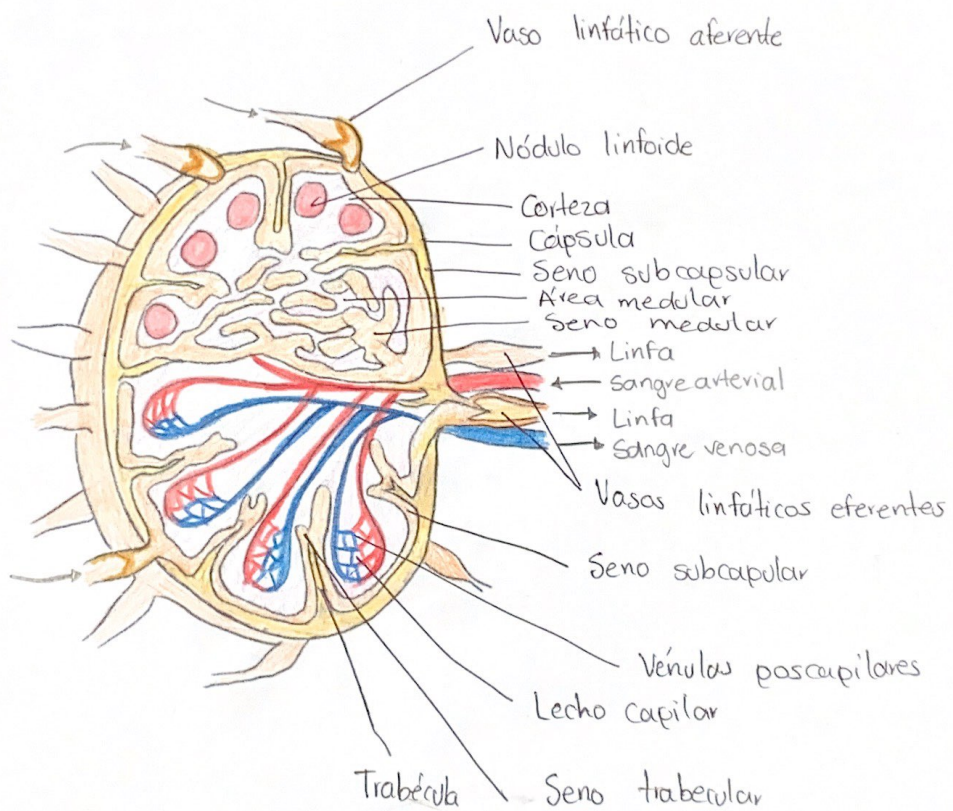 Vaso linfático aferente
Nódulo linfoide
Corteza
Cápsula
Seno subcapsular
Área medular
Seno medular
Linfa
Sangre arterial
Linfa
Sangre venosa
Vasas linfáticos eferentes
Seno subcapular
Vénulas poscapilares
Lecho capilar
Trabécula
Seno trabecular